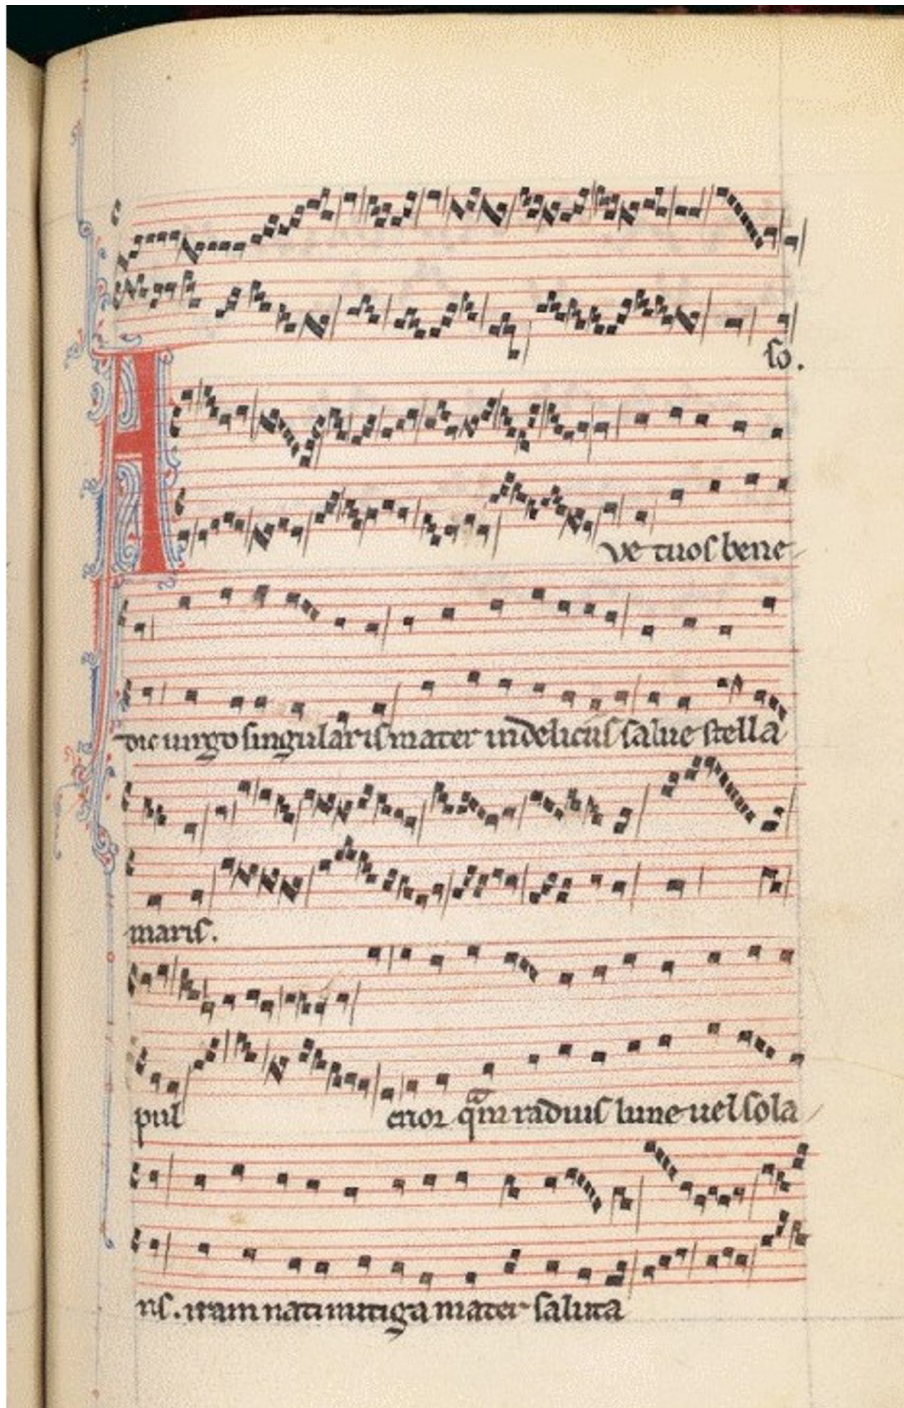 so.
Ave tuos bene
dic uirgo singularis mater indeliciis salue stella
maris.
pul crior qm radius lune uel sola
ris. iram nati mitiga mater saluta